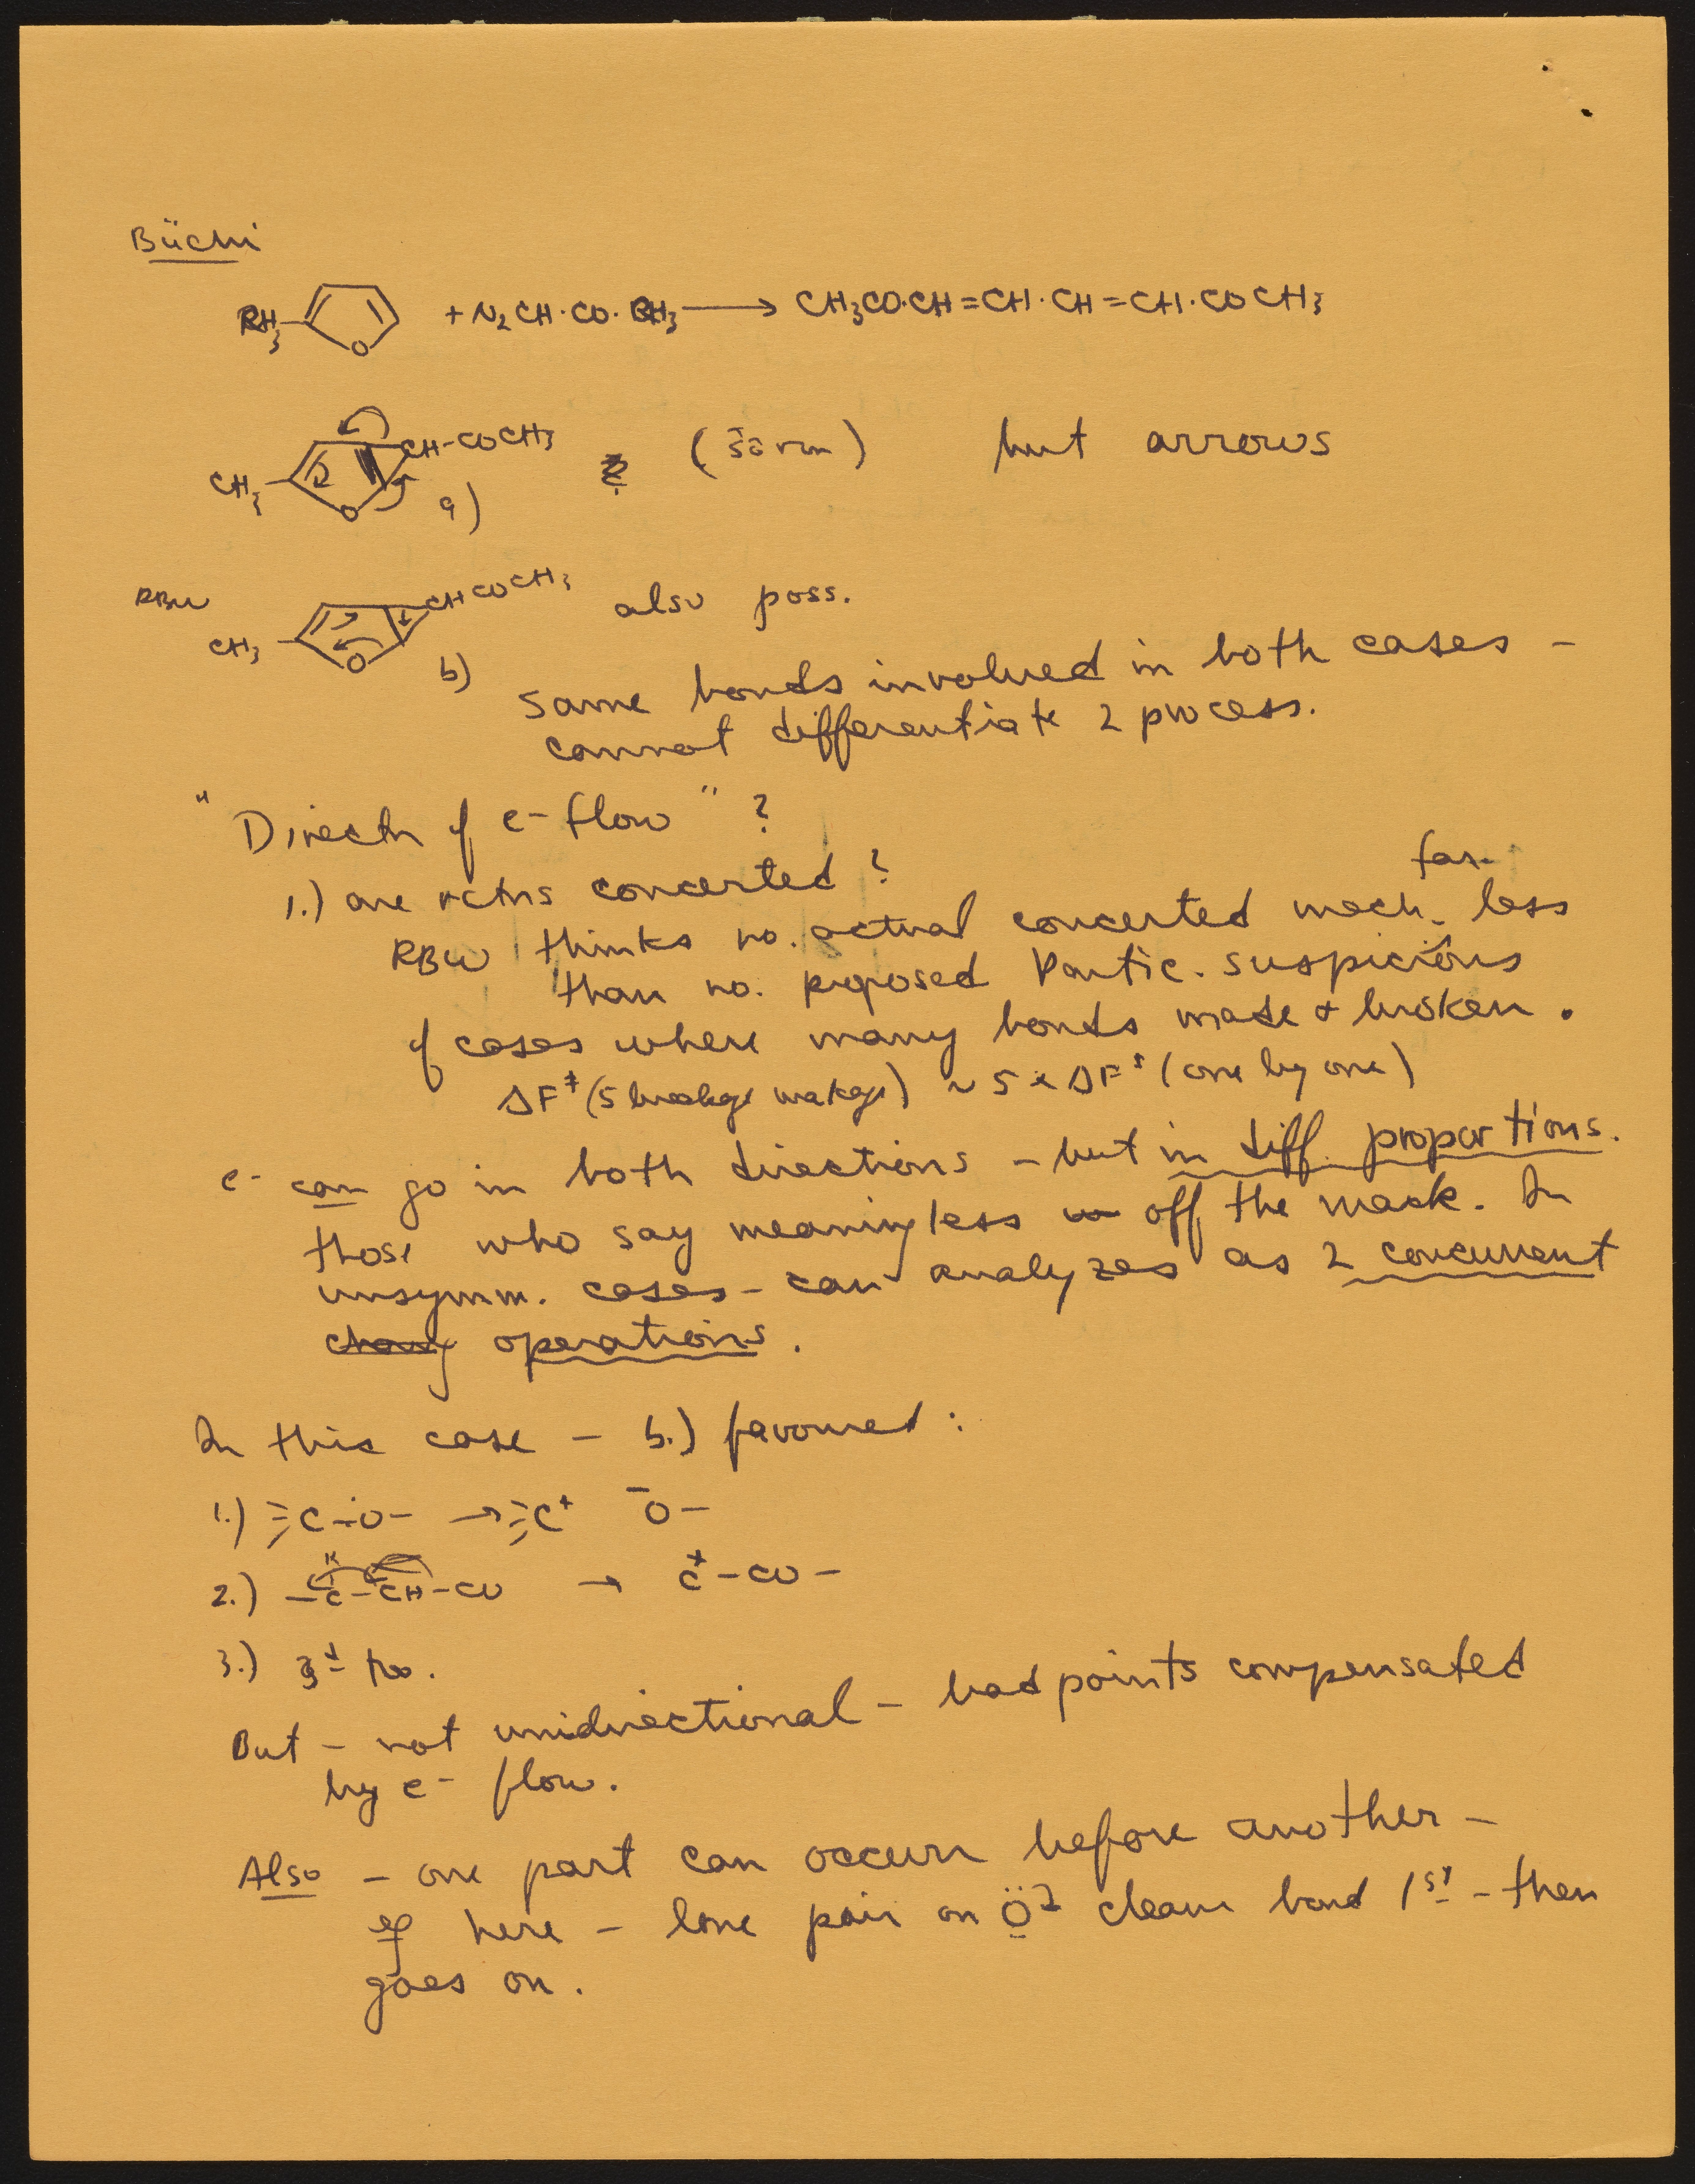 Büchi
CH3 O + N2CH·CO·CH3 ⟶ CH3CO·CH=CH·CH=CH·COCH3
CH3 O CH-COCH3 a) but arrows
RBW
CH3 O CHCOCH3 b) also poss.
same bonds involved in both cases –
cannot differentiate 2 process.
"Directn of e- flow" ?
1.) are rctns concerted ?
RBW thinks no. actual concerted mech. far less
than no. proposed Partic. suspicious
of cases where many bonds made + broken.
ΔF‡ (5 breakgs makgs) ~ 5 × ΔF‡ (one by one)
e- can go in both directions – but in diff. proportions.
those who say meaningless off the mark. In
unsymm. cases – can analyzes as 2 concurrent
operations.
In this case – b.) favoured :
1.) ≡C–O– → ≡C+ -O–
2.) –C–CH–CO → C+–CO–
3.) 3d too.
But – not unidirectional – bad points compensated
by e- flow.
Also – one part can occur before another –
eg here – lone pair on Ö cleave bond 1st – then
goes on.